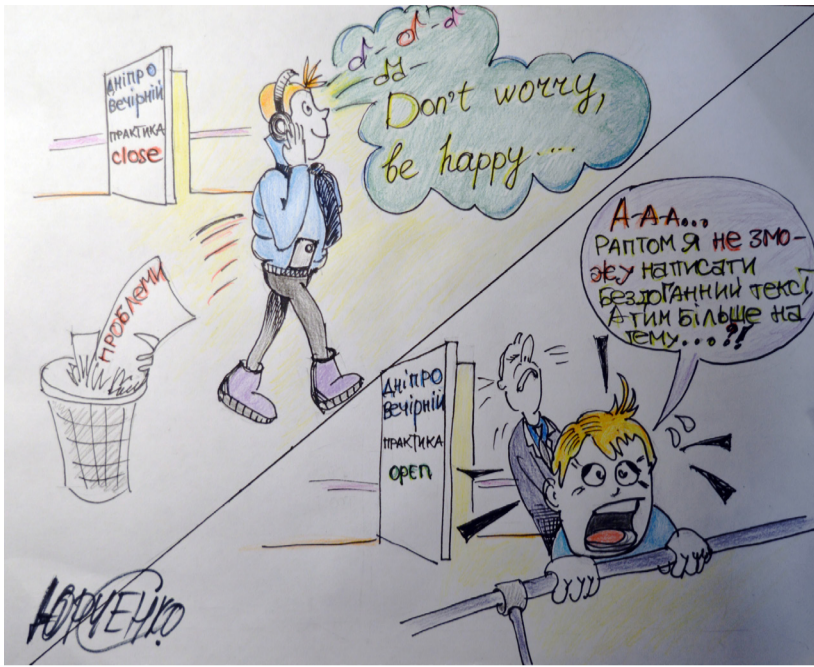 ДНІПРО
Вечірній
ПРАКТИКА
close
Don't worry,
be happy....
ПРОБЛЕМИ
А-А-А...
РАПТОМ Я НЕ ЗМО-
ЖУ НАПИСАТИ
БЕЗДОГАННИЙ ТЕКСТ,
А ТИМ БІЛЬШЕ НА
ТЕМУ...?!!
ДНІПРО
Вечірній
ПРАКТИКА
OPEN
ЮРЧЕНКО